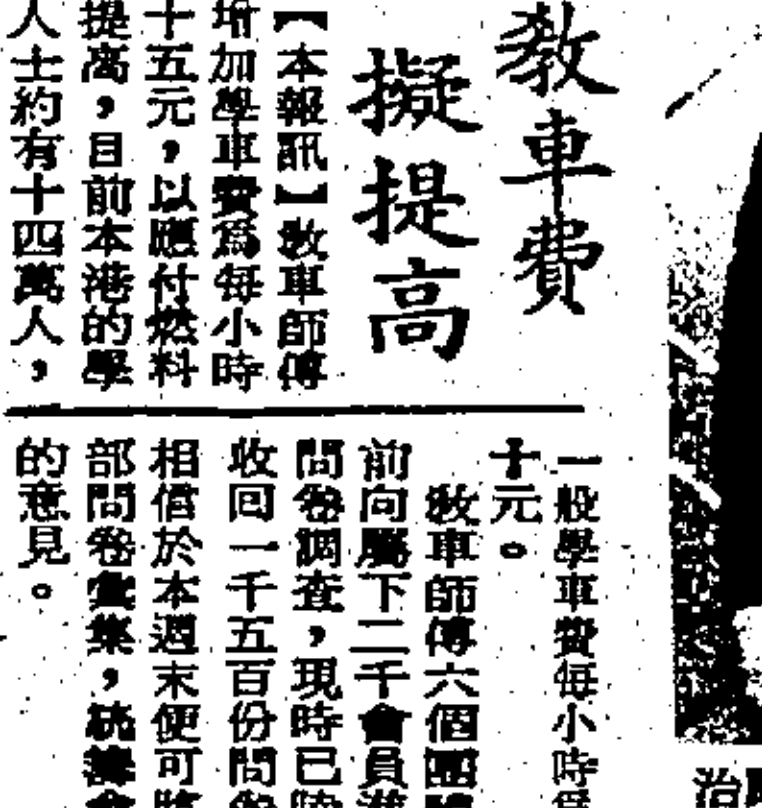 教車費
擬提高
【本報訊】教車師傅
增加學車費爲每小時
十五元，以應付燃料
提高，目前本港的學
人士約有十四萬人，
一般學車費每小時爲
十元。
教車師傅六個團體
前向屬下二千會員進
問卷調查，現時已陸
收回一千五百份問卷
相信於本週末便可將
部問卷彙集，統籌會
的意見。
治